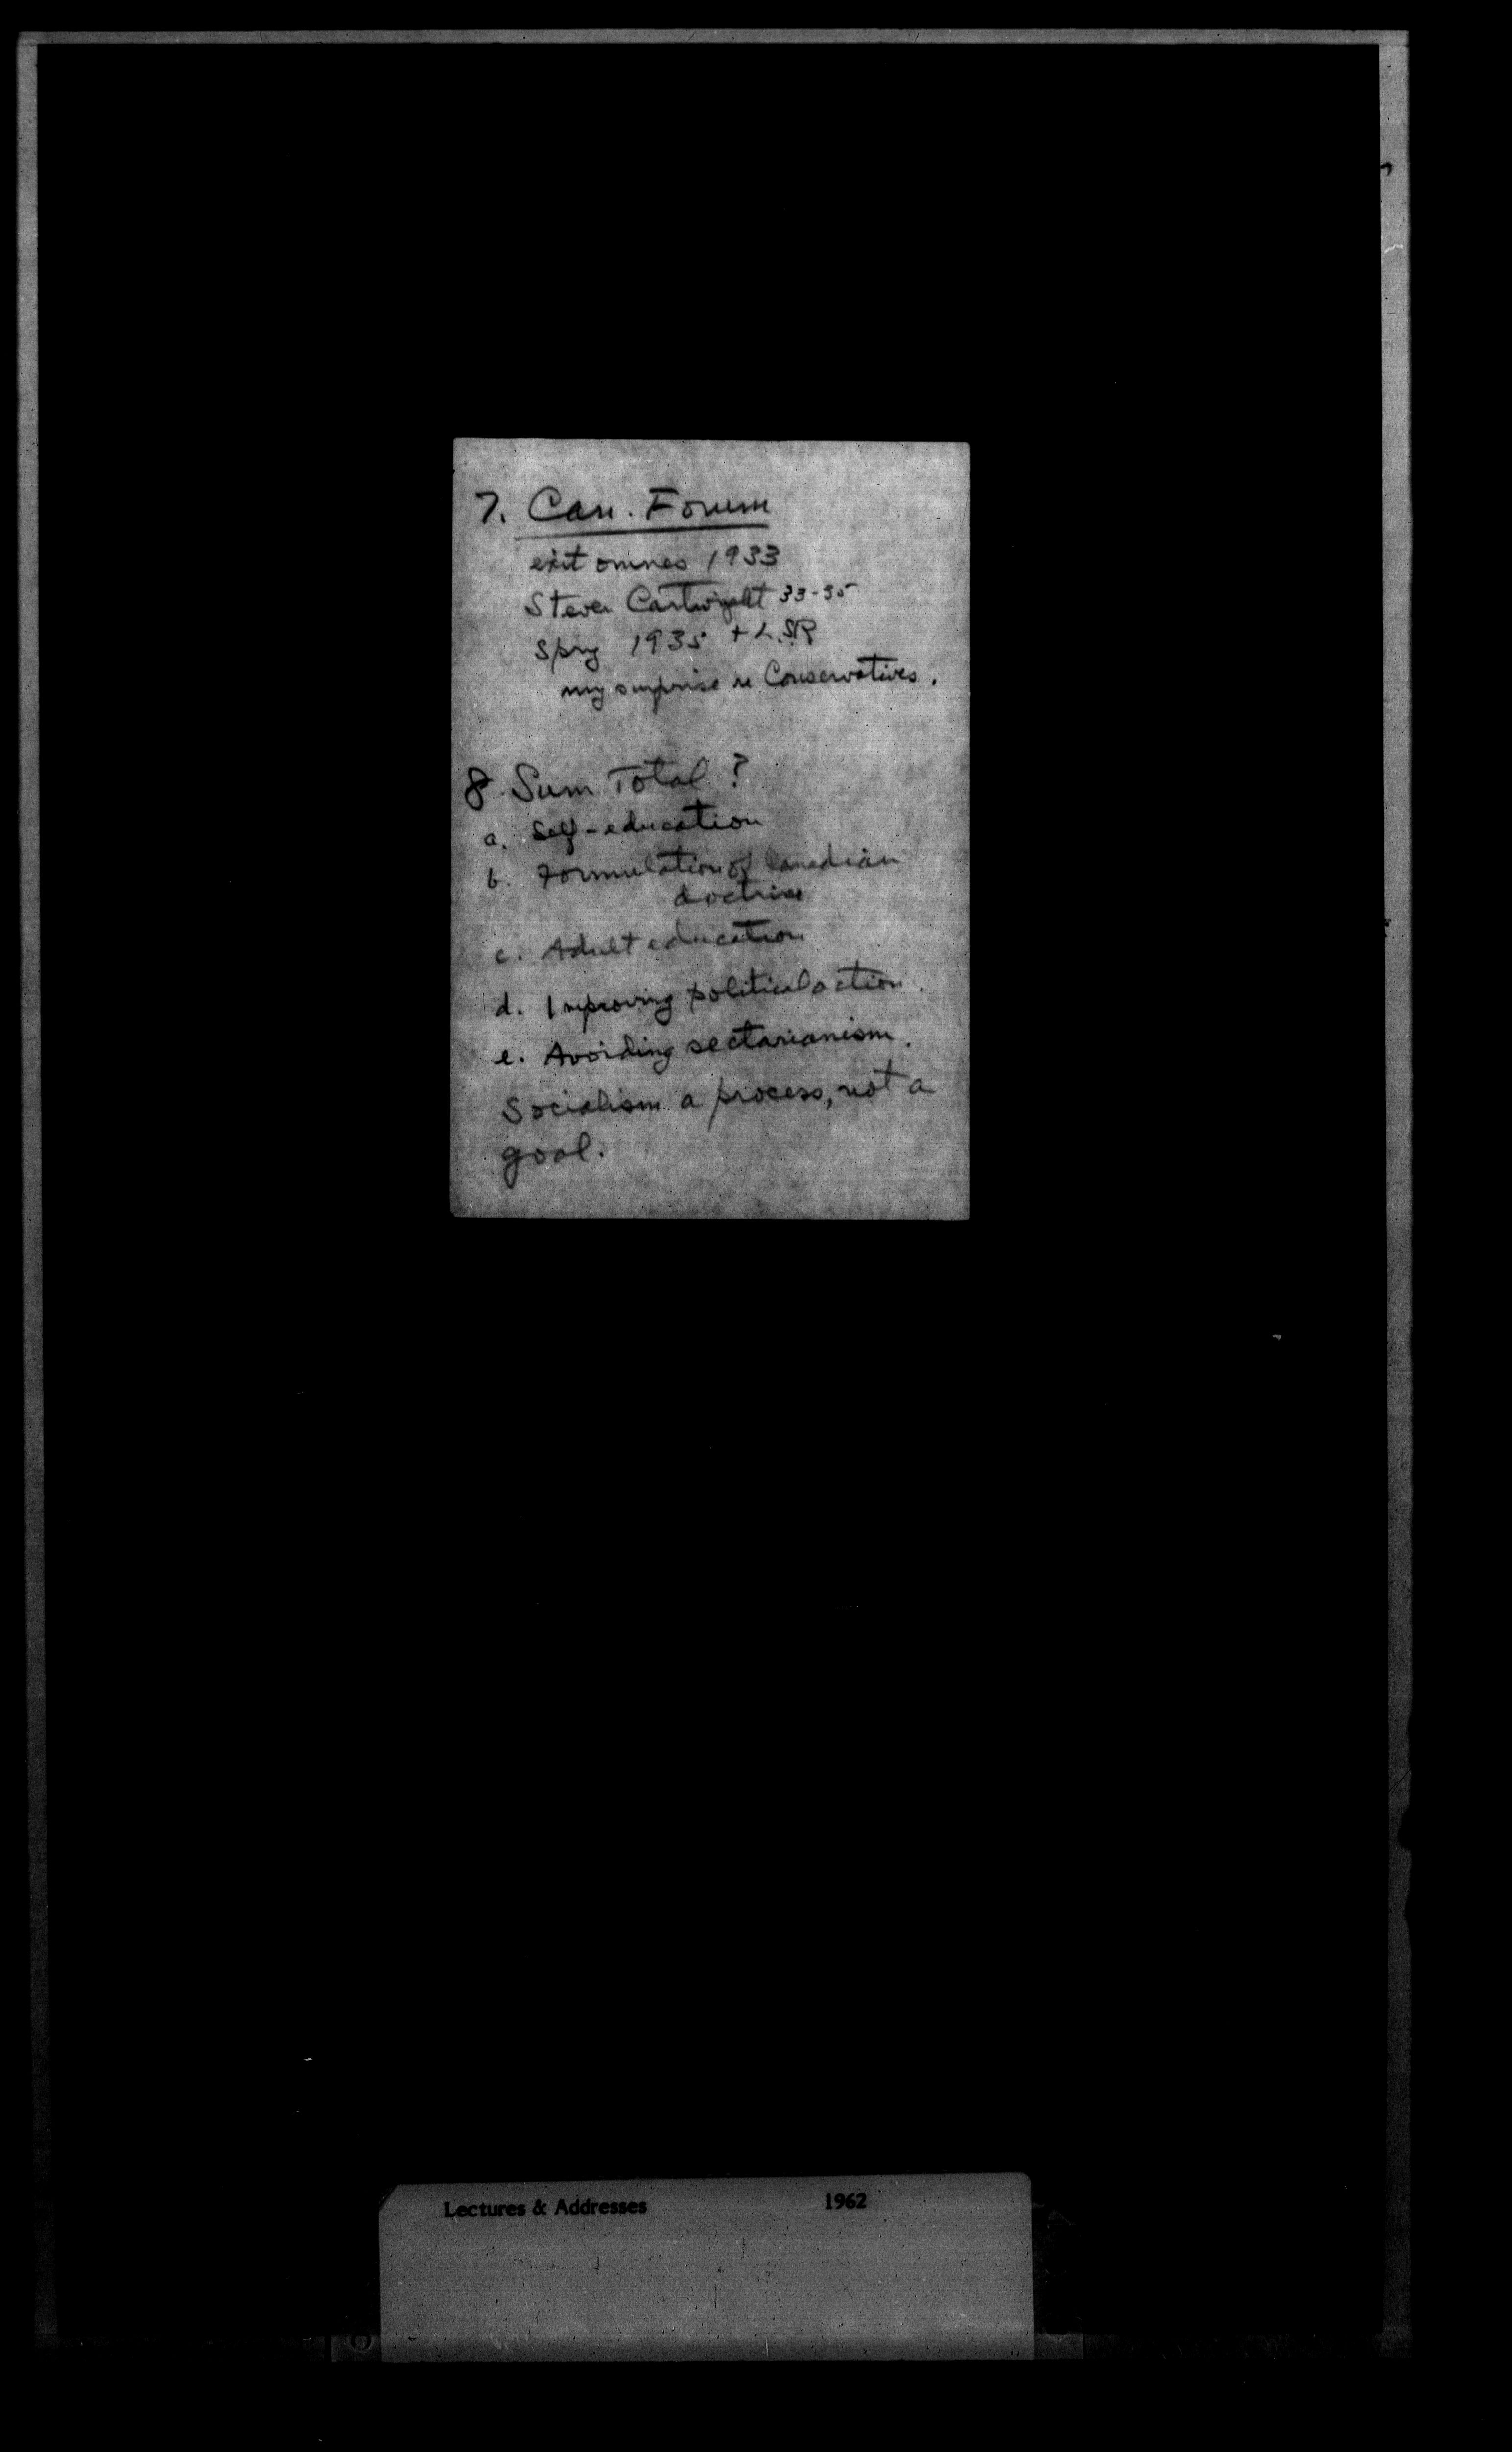 7. Can. Forum
exit omnes 1933
Steven Cartwright 33-35
Spry 1935 + L.S.R
my surprise re Conservatives.
8. Sum Total?
a. Self-education
b. Formulation of Canadian
doctrine
c. Adult education
d. Improving political action.
e. Avoiding sectarianism.
Socialism a process, not a
goal.
Lectures & Addresses 1962